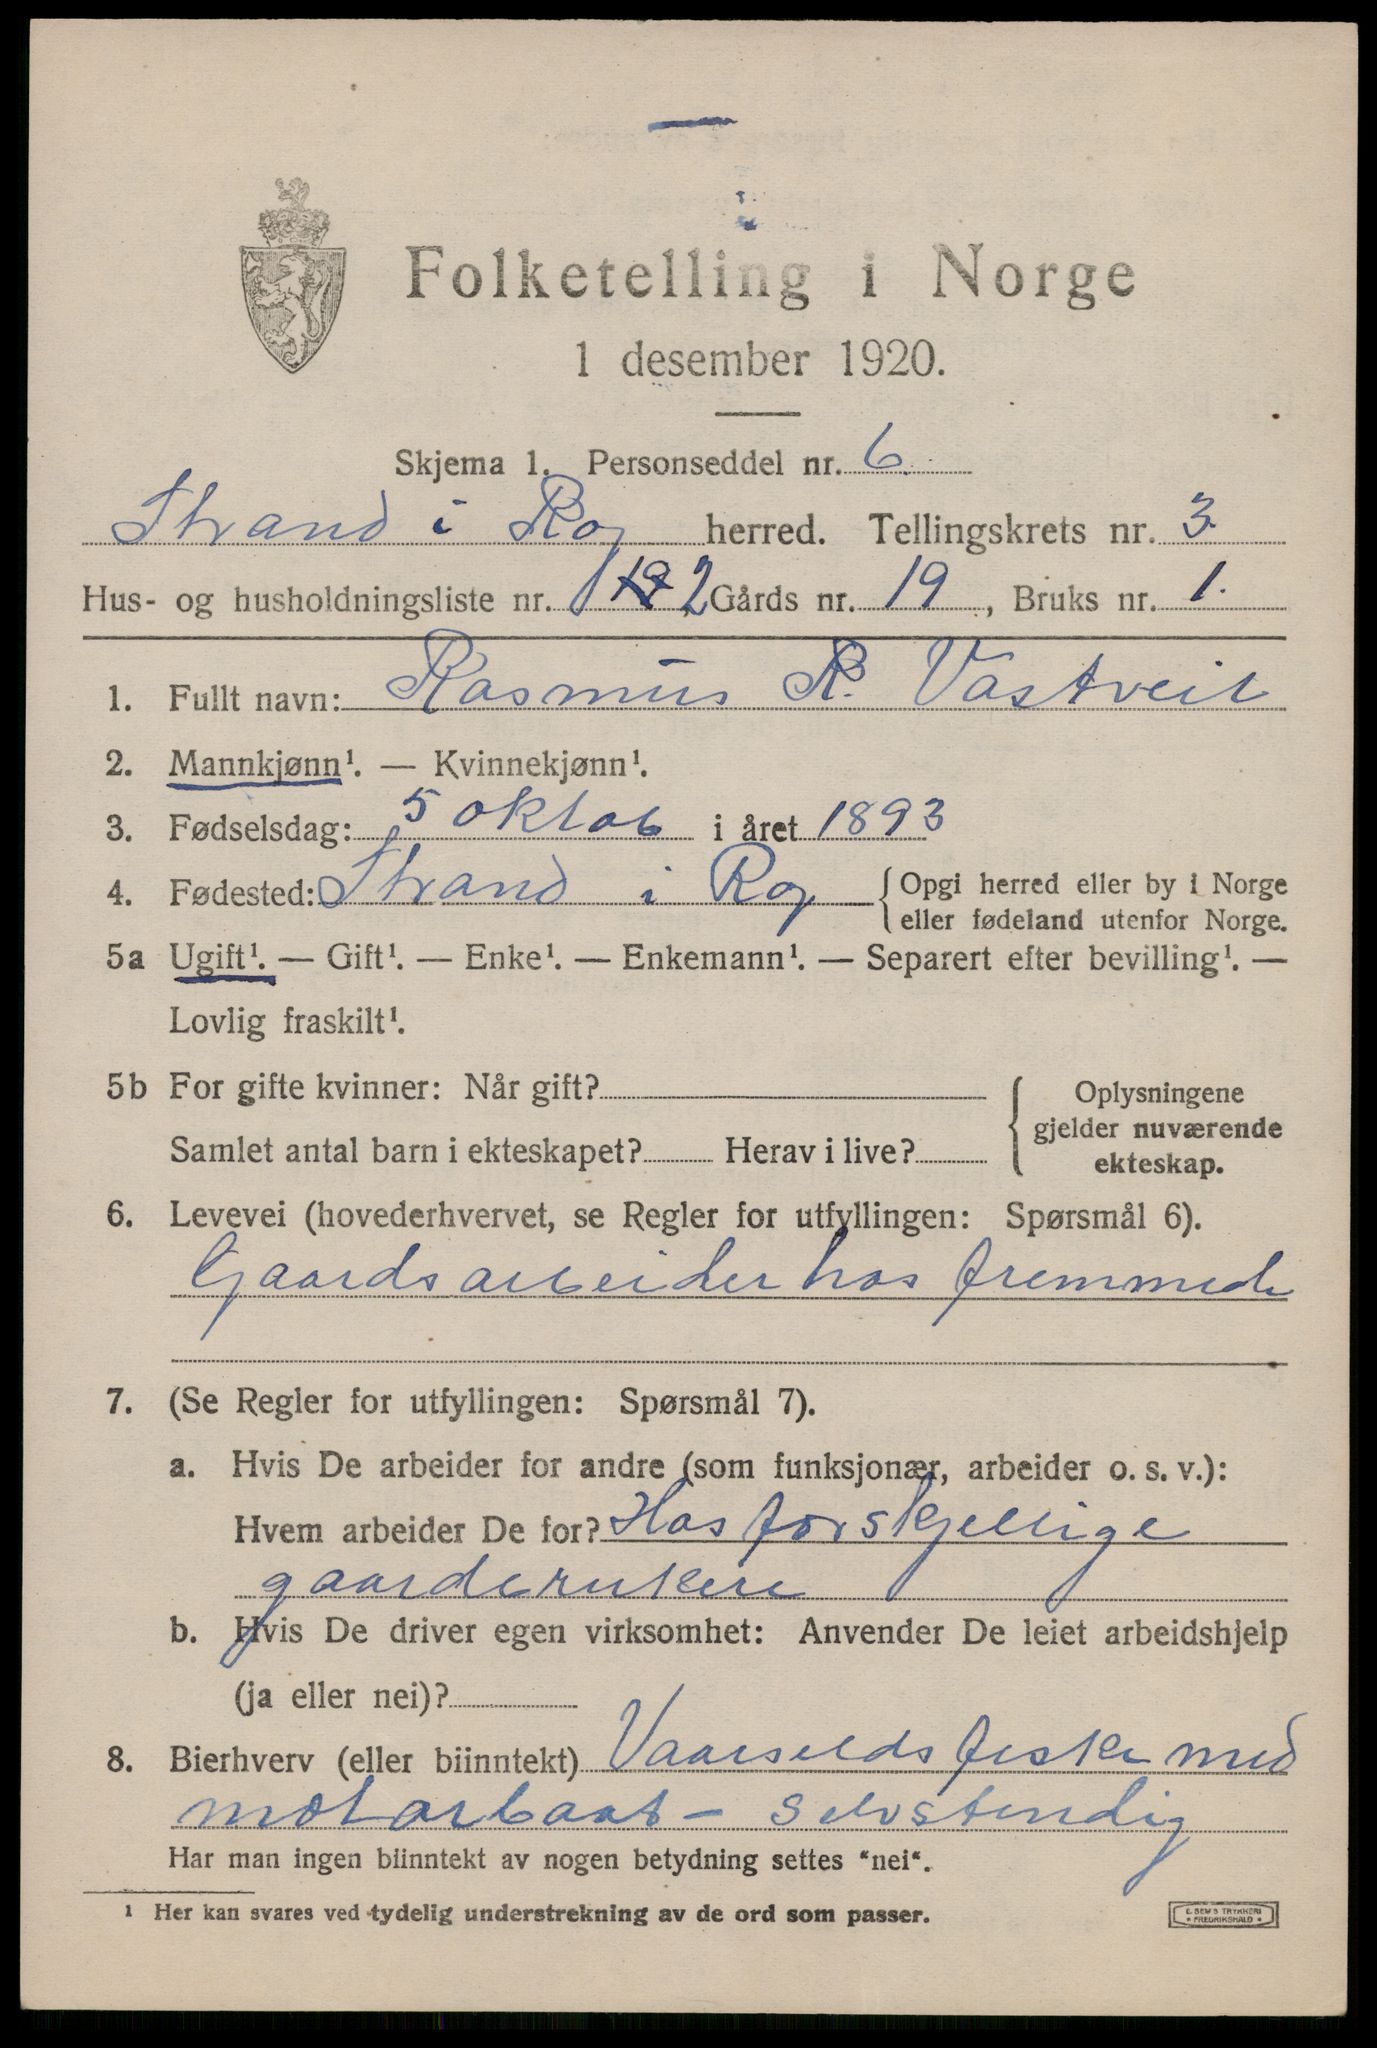 Folketelling i Norge
1 desember 1920.
Skjema 1. Personseddel nr. 6.
Strand i Rog herred. Tellingskrets nr. 3.
Hus- og husholdningsliste nr. 2 Gårds nr. 19, Bruks nr. 1.
1. Fullt navn: Rasmus R. Vastveit
2. Mannkjønn¹. — Kvinnekjønn¹.
3. Fødselsdag: 5 oktob i året 1893
4. Fødested: Strand i Rog { Opgi herred eller by i Norge
eller fødeland utenfor Norge.
5a Ugift¹. — Gift¹. — Enke¹. — Enkemann¹. — Separert efter bevilling¹. —
Lovlig fraskilt¹.
5b For gifte kvinner: Når gift?
Samlet antal barn i ekteskapet? Herav i live?
{ Oplysningene
gjelder nuværende
ekteskap.
6. Levevei (hovederhvervet, se Regler for utfyllingen: Spørsmål 6).
Gaardsarbeider hos fremmede
7. (Se Regler for utfyllingen: Spørsmål 7).
a. Hvis De arbeider for andre (som funksjonær, arbeider o. s. v.):
Hvem arbeider De for? Hos forskjellige
b. Hvis De driver egen virksomhet: Anvender De leiet arbeidshjelp
(ja eller nei)?
8. Bierhverv (eller biinntekt) Vaarsildsfiske med
motorbaat - selvstendig
Har man ingen biinntekt av nogen betydning settes "nei".
¹ Her kan svares ved tydelig understrekning av de ord som passer.
E. SEM'S TRYKKERI
• FREDRIKSHALD •